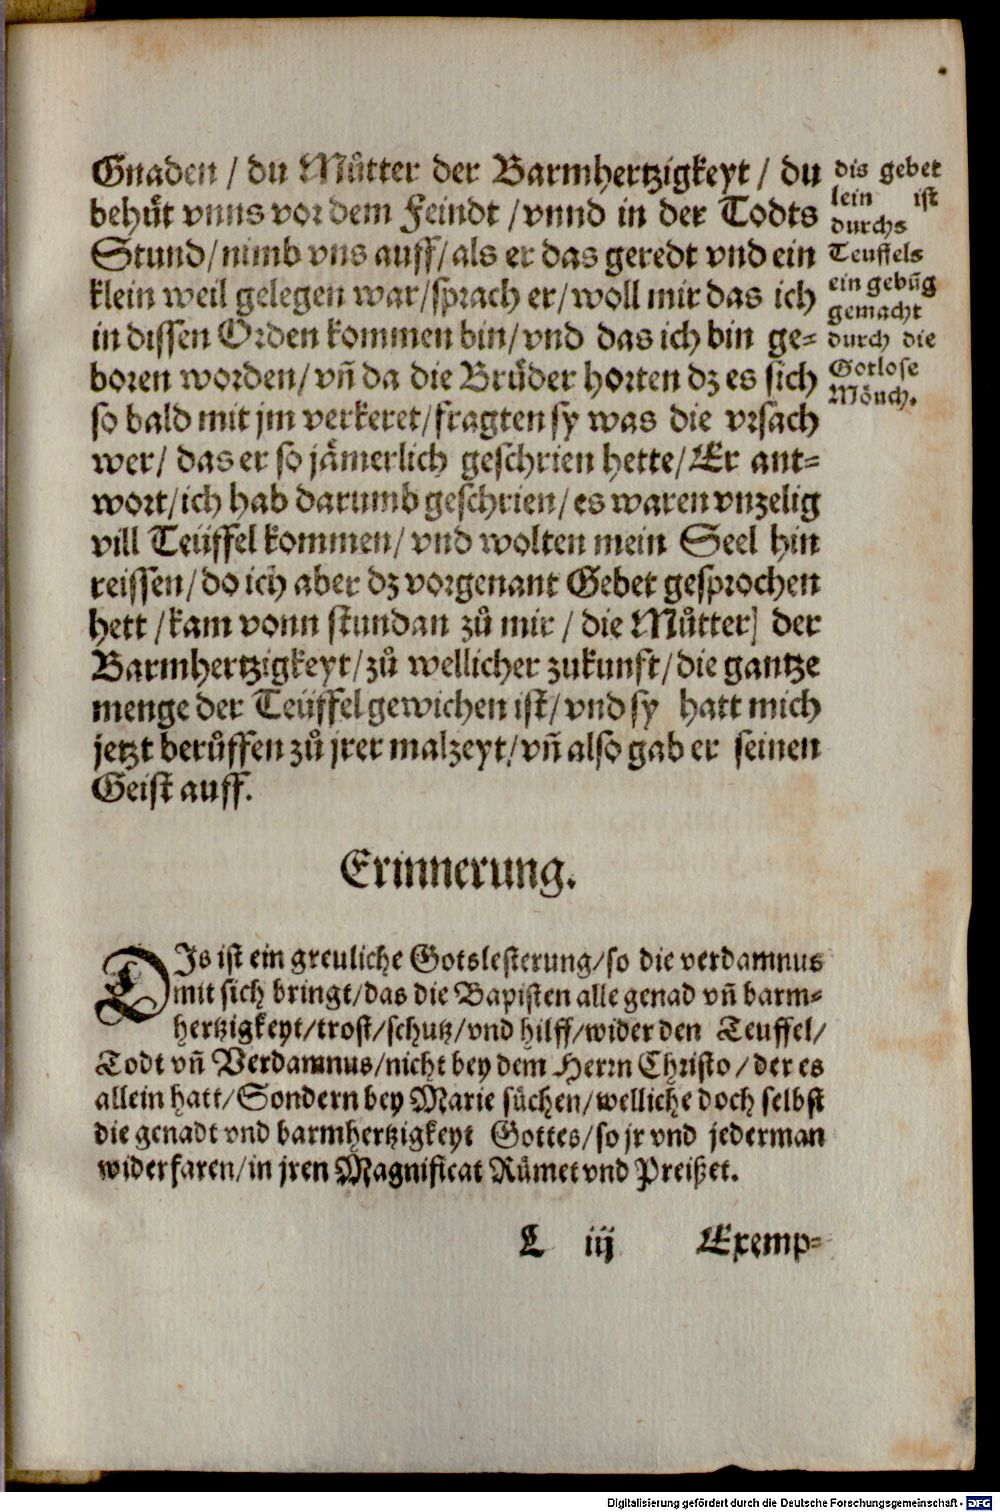 Gnaden / du Můtter der Barmhertzigkeyt / du
behůt vnns vor dem Feindt / vnnd in der Todts
Stund / nimb vns auff / als er das geredt vnd ein
klein weil gelegen war / sprach er / woll mir das ich
in dissen Orden kommen bin / vnd das ich bin ge=
boren worden / vñ da die Brůder horten dz es sich
so bald mit jm verkeret / fragten sy was die vrsach
wer / das er so jåmerlich geschrien hette / Er ant=
wort / ich hab darumb geschrien / es waren vnzelig
vill Teüffel kommen / vnd wolten mein Seel hin
reissen / do ich aber dz vorgenant Gebet gesprochen
hett / kam vonn stundan zů mir / die Můtter] der
Barmhertzigkeyt / zů wellicher zukunft / die gantze
menge der Teüffel gewichen ist / vnd sy hatt mich
jetzt berůffen zů jrer malzeyt / vñ also gab er seinen
Geist auff.
dis gebet
lein ist
durchs
Teuffels
ein gebũg
gemacht
durch die
Gotlose
Mönch.
Erinnerung.
DJs ist ein greuliche Gotslesterung / so die verdamnus
mit sich bringt / das die Bapisten alle genad vñ barm=
hertzigkeyt / trost / schutz / vnd hilff / wider den Teuffel /
Todt vñ Verdamnus / nicht bey dem Herrn Christo / der es
allein hatt / Sondern bey Marie sůchen / welliche doch selbst
die genadt vnd barmhertzigkeyt Gottes / so jr vnd jederman
widerfaren / in jren Magnificat Růmet vnd Preißet.
L iij Exemp=
Digitalisierung gefördert durch die Deutsche Forschungsgemeinschaft - DFG